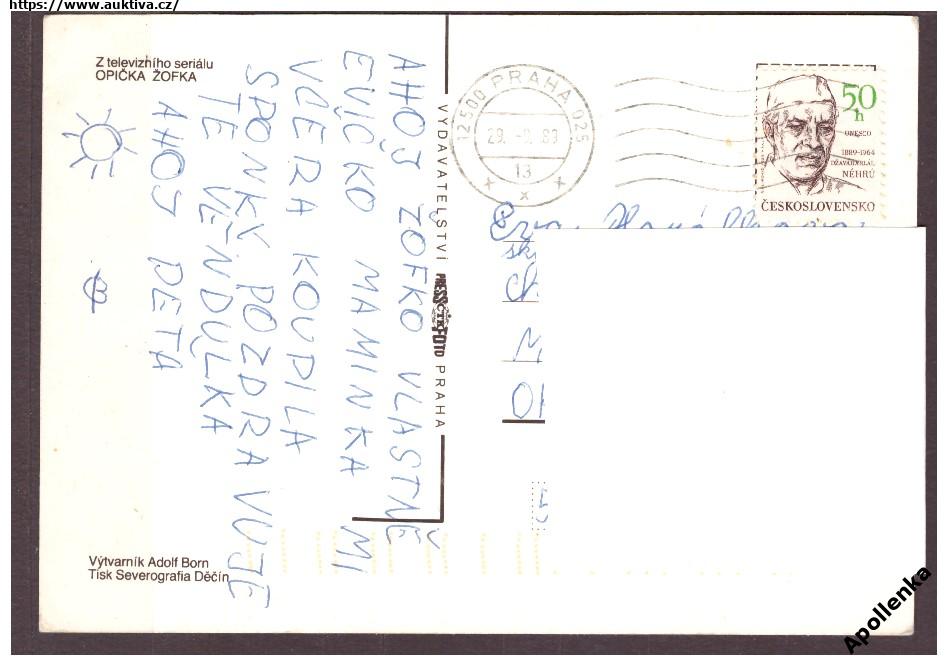 https://www.auktiva.cz/
Z televizního seriálu
OPIČKA ŽOFKA
AHOJ ŽOFKO VLASTNĚ
EVIČKO MAMINKA MI
VČERA KOUPILA
SPONKY POZDRAVUJE
TĚ VĚNDULKA
AHOJ DETA
VYDAVATELSTVÍ PRESSFOTO PRAHA
ČTK
12500 PRAHA 025
13
50
h
UNESCO
1889-1964
DŽAVÁHARLÁL
NÉHRÚ
ČESKOSLOVENSKO
Eva
Výtvarník Adolf Born
Tisk Severografia Děčín
Apollenka